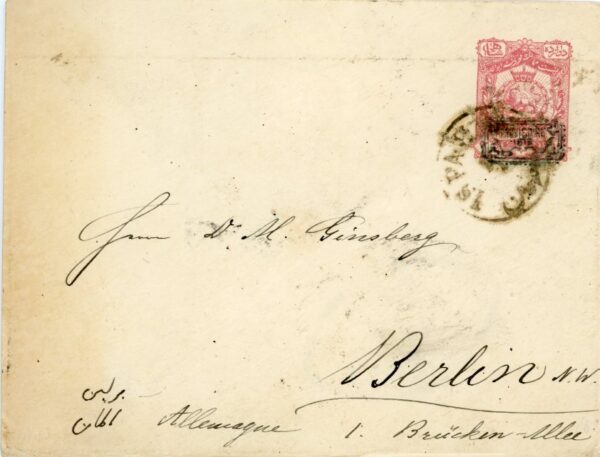 ISPAHAN
Herrn Dr. M. Ginsberg
Berlin N.W.
برلین
آلمان
Allemagne 1. Brücken-Allee